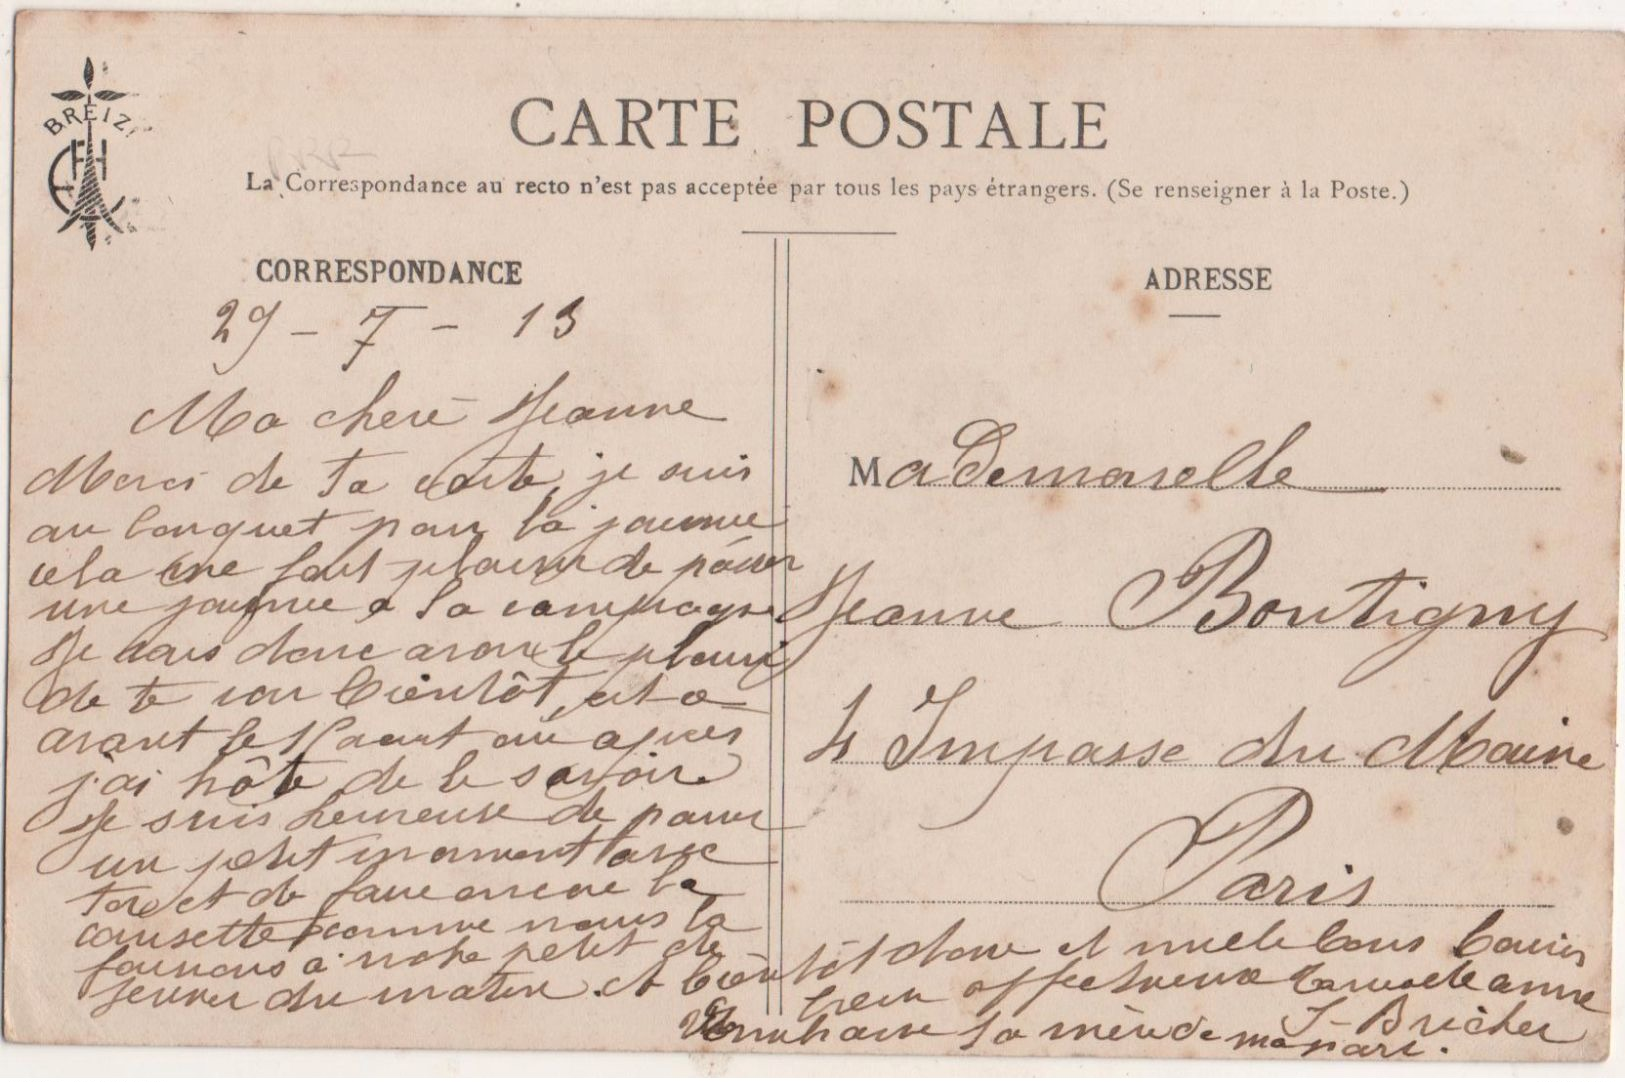 BREIZ
EH
CARTE POSTALE
La Correspondance au recto n'est pas acceptée par tous les pays étrangers. (Se renseigner à la Poste.)
CORRESPONDANCE
29 - 7 - 13
Ma chere Jeanne
Merci de ta carte, je suis
au Conquet pour la journee
cela me fait plaisir de passer
une journee a la campagne
Je vais donc avoir le plaisir
de te voir bientôt, est-ce
avant le ou apres
j'ai hâte de le savoir
Je suis heureuse de passer
un petit moment avec
toi et de faire encore la
causette comme nous la
faisions à notre petit de
jeuner du matin. A bientôt donc et mille bons baisers
bien affectueux Jeanne
J Bricher
la mère de ma part.
ADRESSE
Mademoiselle
Jeanne Boutigny
4 Impasse du Maine
Paris